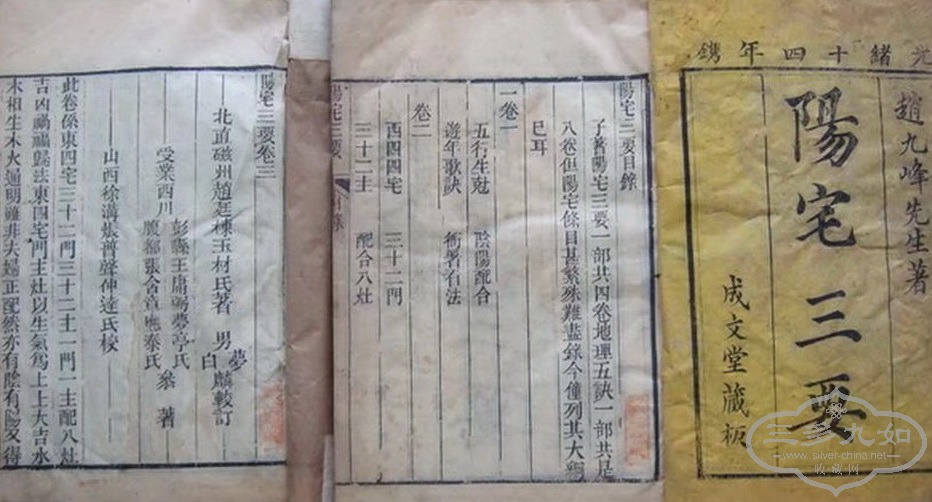 光緒十四年鐫
趙九峰先生著
陽宅三要
成文堂藏板
陽宅三要目錄
子著陽宅三要一部共四卷地理五訣一部共足
八卷但陽宅條目甚繁殊難盡錄今僅列其大綱
已耳
一卷一
五行生尅 陰陽配合
遊年歌訣 衙署石法
卷二
西四四宅 三十二門
三十二主 配合八灶
陽宅三要 目錄
陽宅三要卷三
北直磁州趙廷棟玉材氏著 男 夢白 麟較訂
受業西川 彭縣王庸弼夢亭氏
張含章應泰氏 著
山西徐溝 普聲伸達氏校
此卷係東四宅三十二門三十二主一門一主配八灶
吉凶禍福歸法東四宅門主灶以生氣爲上上大吉水
木相生木火通明雖非夫婦正配然亦有陰有陽又得
三多九如
www.silver-china.net
收藏网